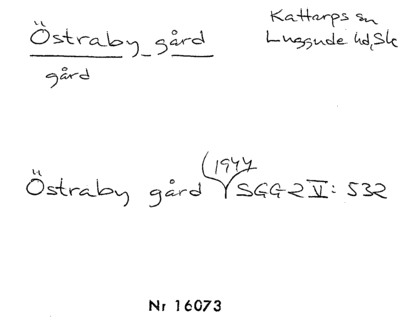 Östraby gård
Kattarps sn
Luggude hd, Sk
gård
Östraby gård (1944 SGG 2 V: 532
Nr 16073